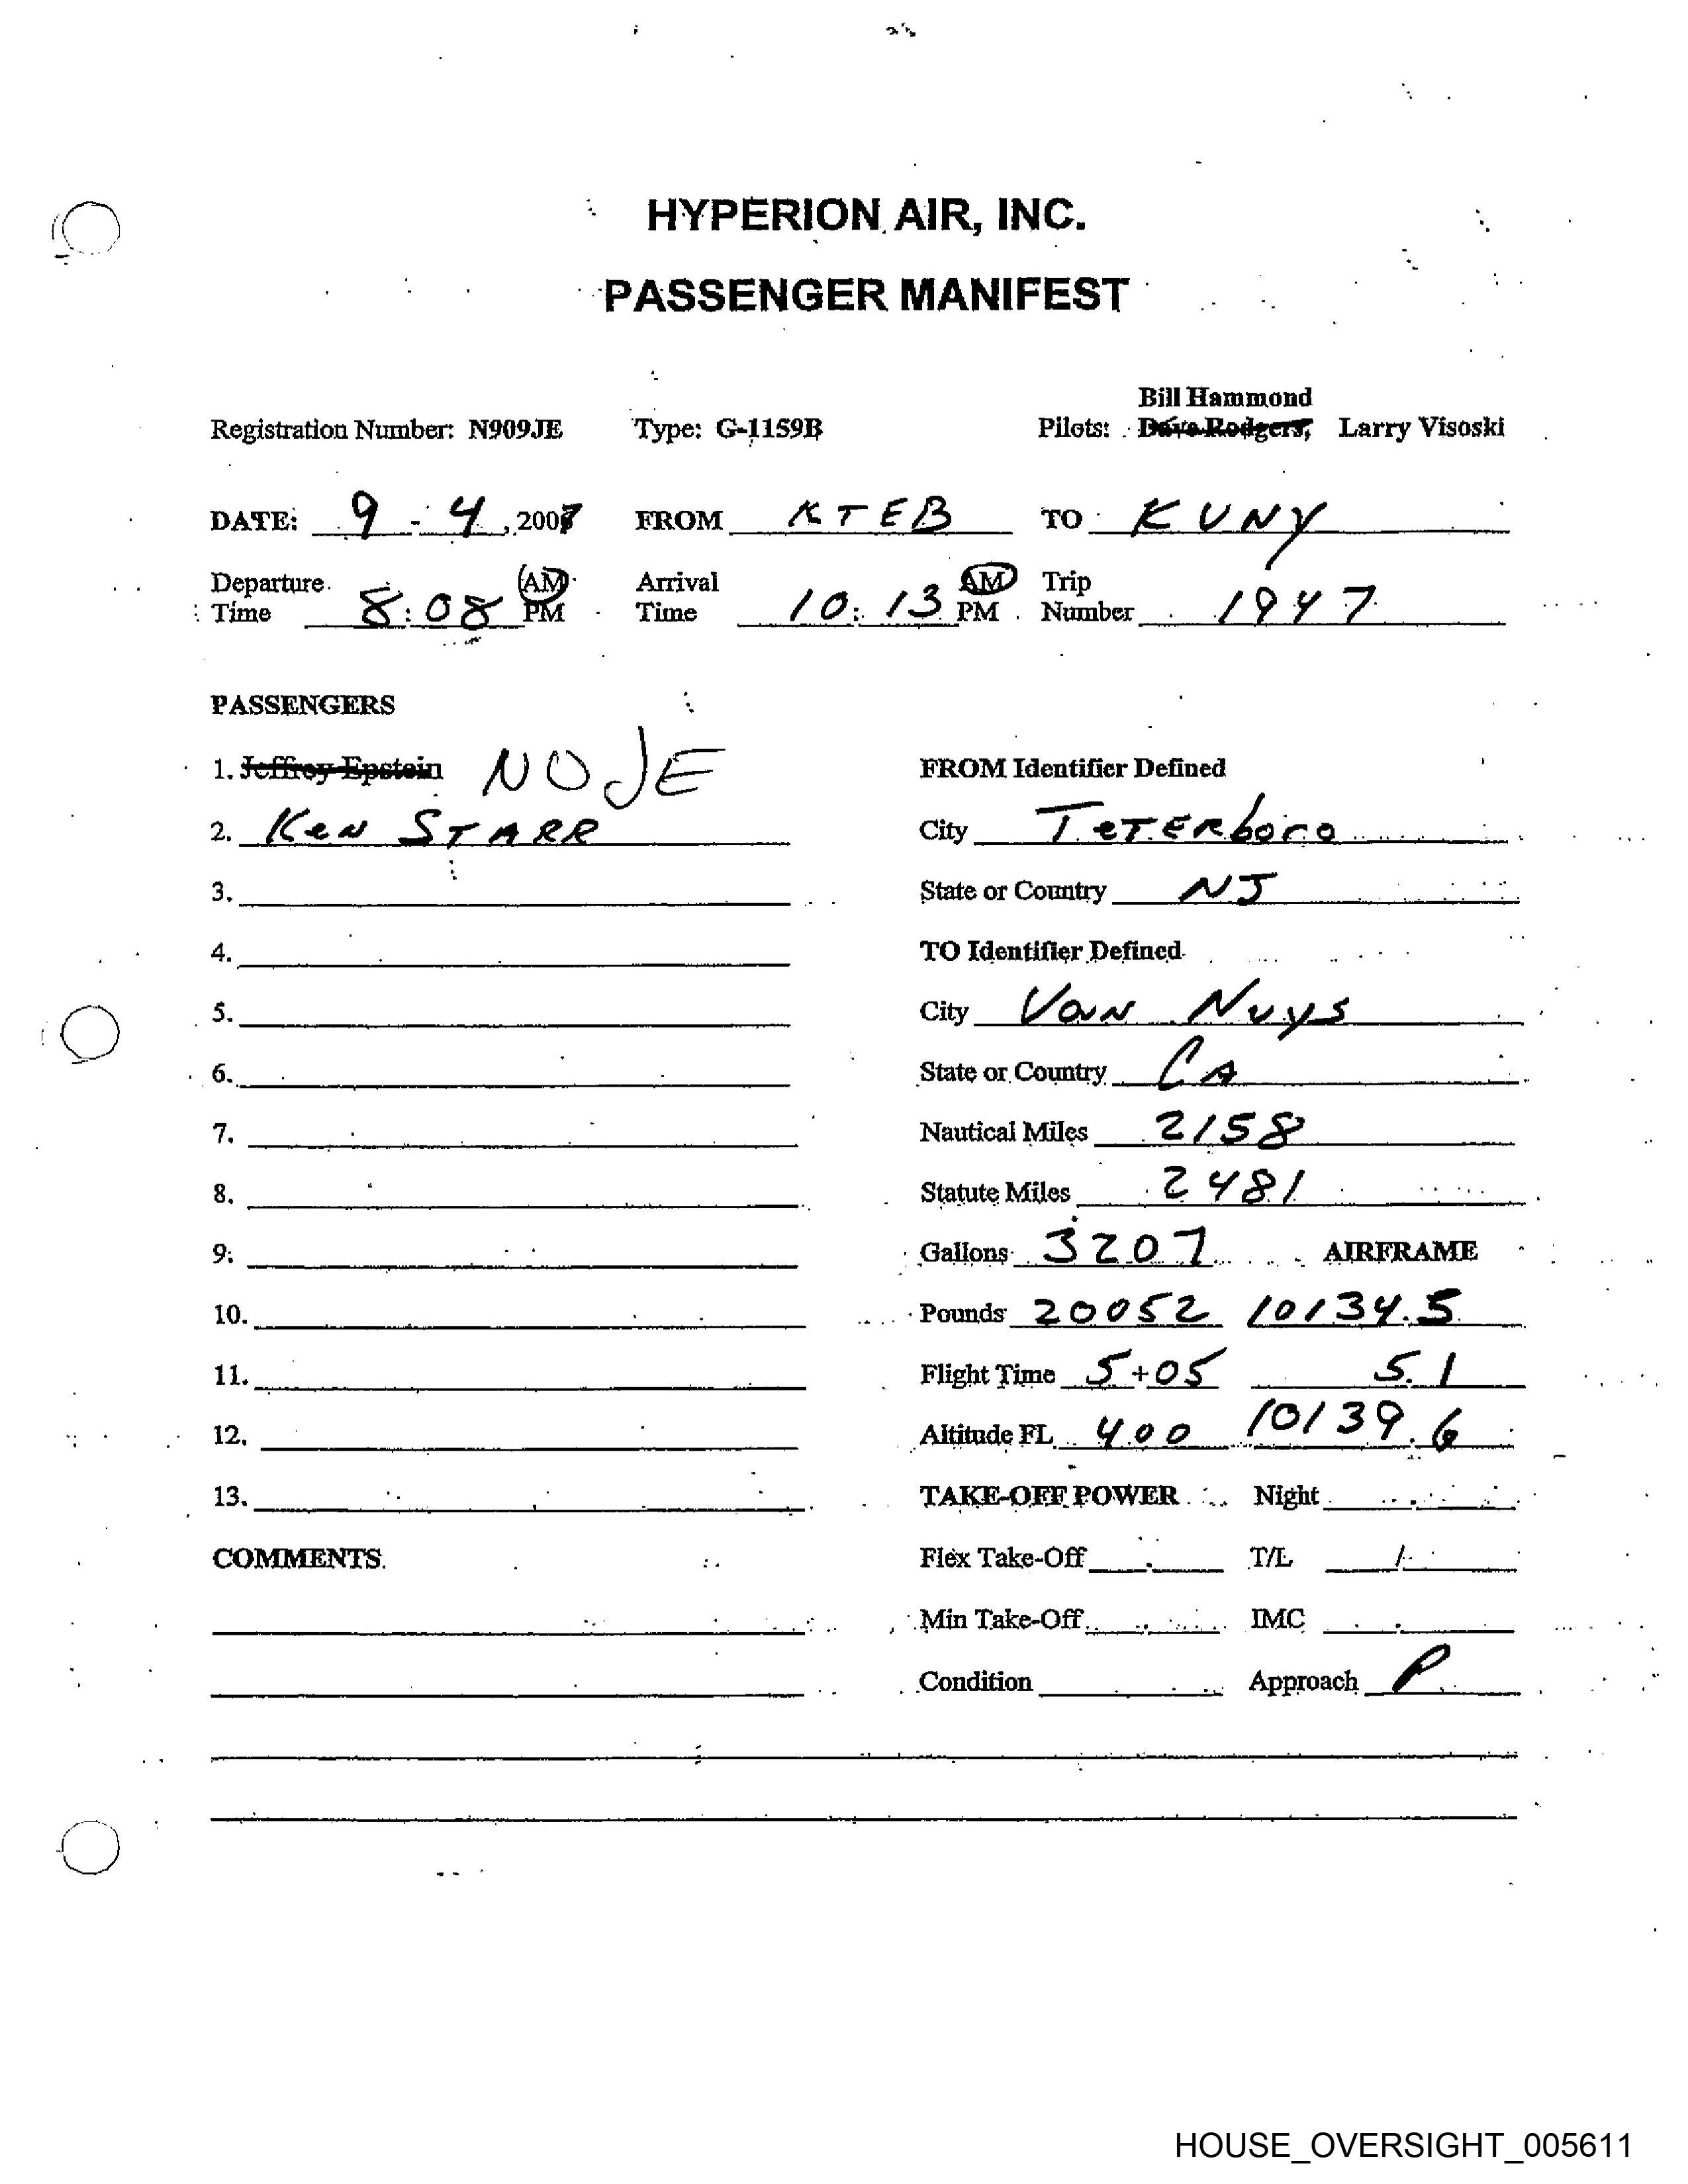 HYPERION AIR, INC.
PASSENGER MANIFEST
Bill Hammond
Registration Number: N909JE Type: G-1159B Pilots: Dave Rodgers, Larry Visoski
DATE: 9 - 4, 2007 FROM KTEB TO KVNY
Departure Time 8:08 AM PM Arrival Time 10:13 AM PM Trip Number 1947
PASSENGERS
1. Jeffrey Epstein NO JE
2. Ken STARR
3.
4.
5.
6.
7.
8.
9.
10.
11.
12.
13.
COMMENTS
FROM Identifier Defined
City TETERboro
State or Country NJ
TO Identifier Defined
City Van Nuys
State or Country CA
Nautical Miles 2158
Statute Miles 2481
Gallons 3207 AIRFRAME
Pounds 20052 10134.5
Flight Time 5+05 5.1
Altitude FL 400 10139.6
TAKE-OFF POWER Night
Flex Take-Off T/L /
Min Take-Off IMC
Condition Approach P
HOUSE_OVERSIGHT_005611